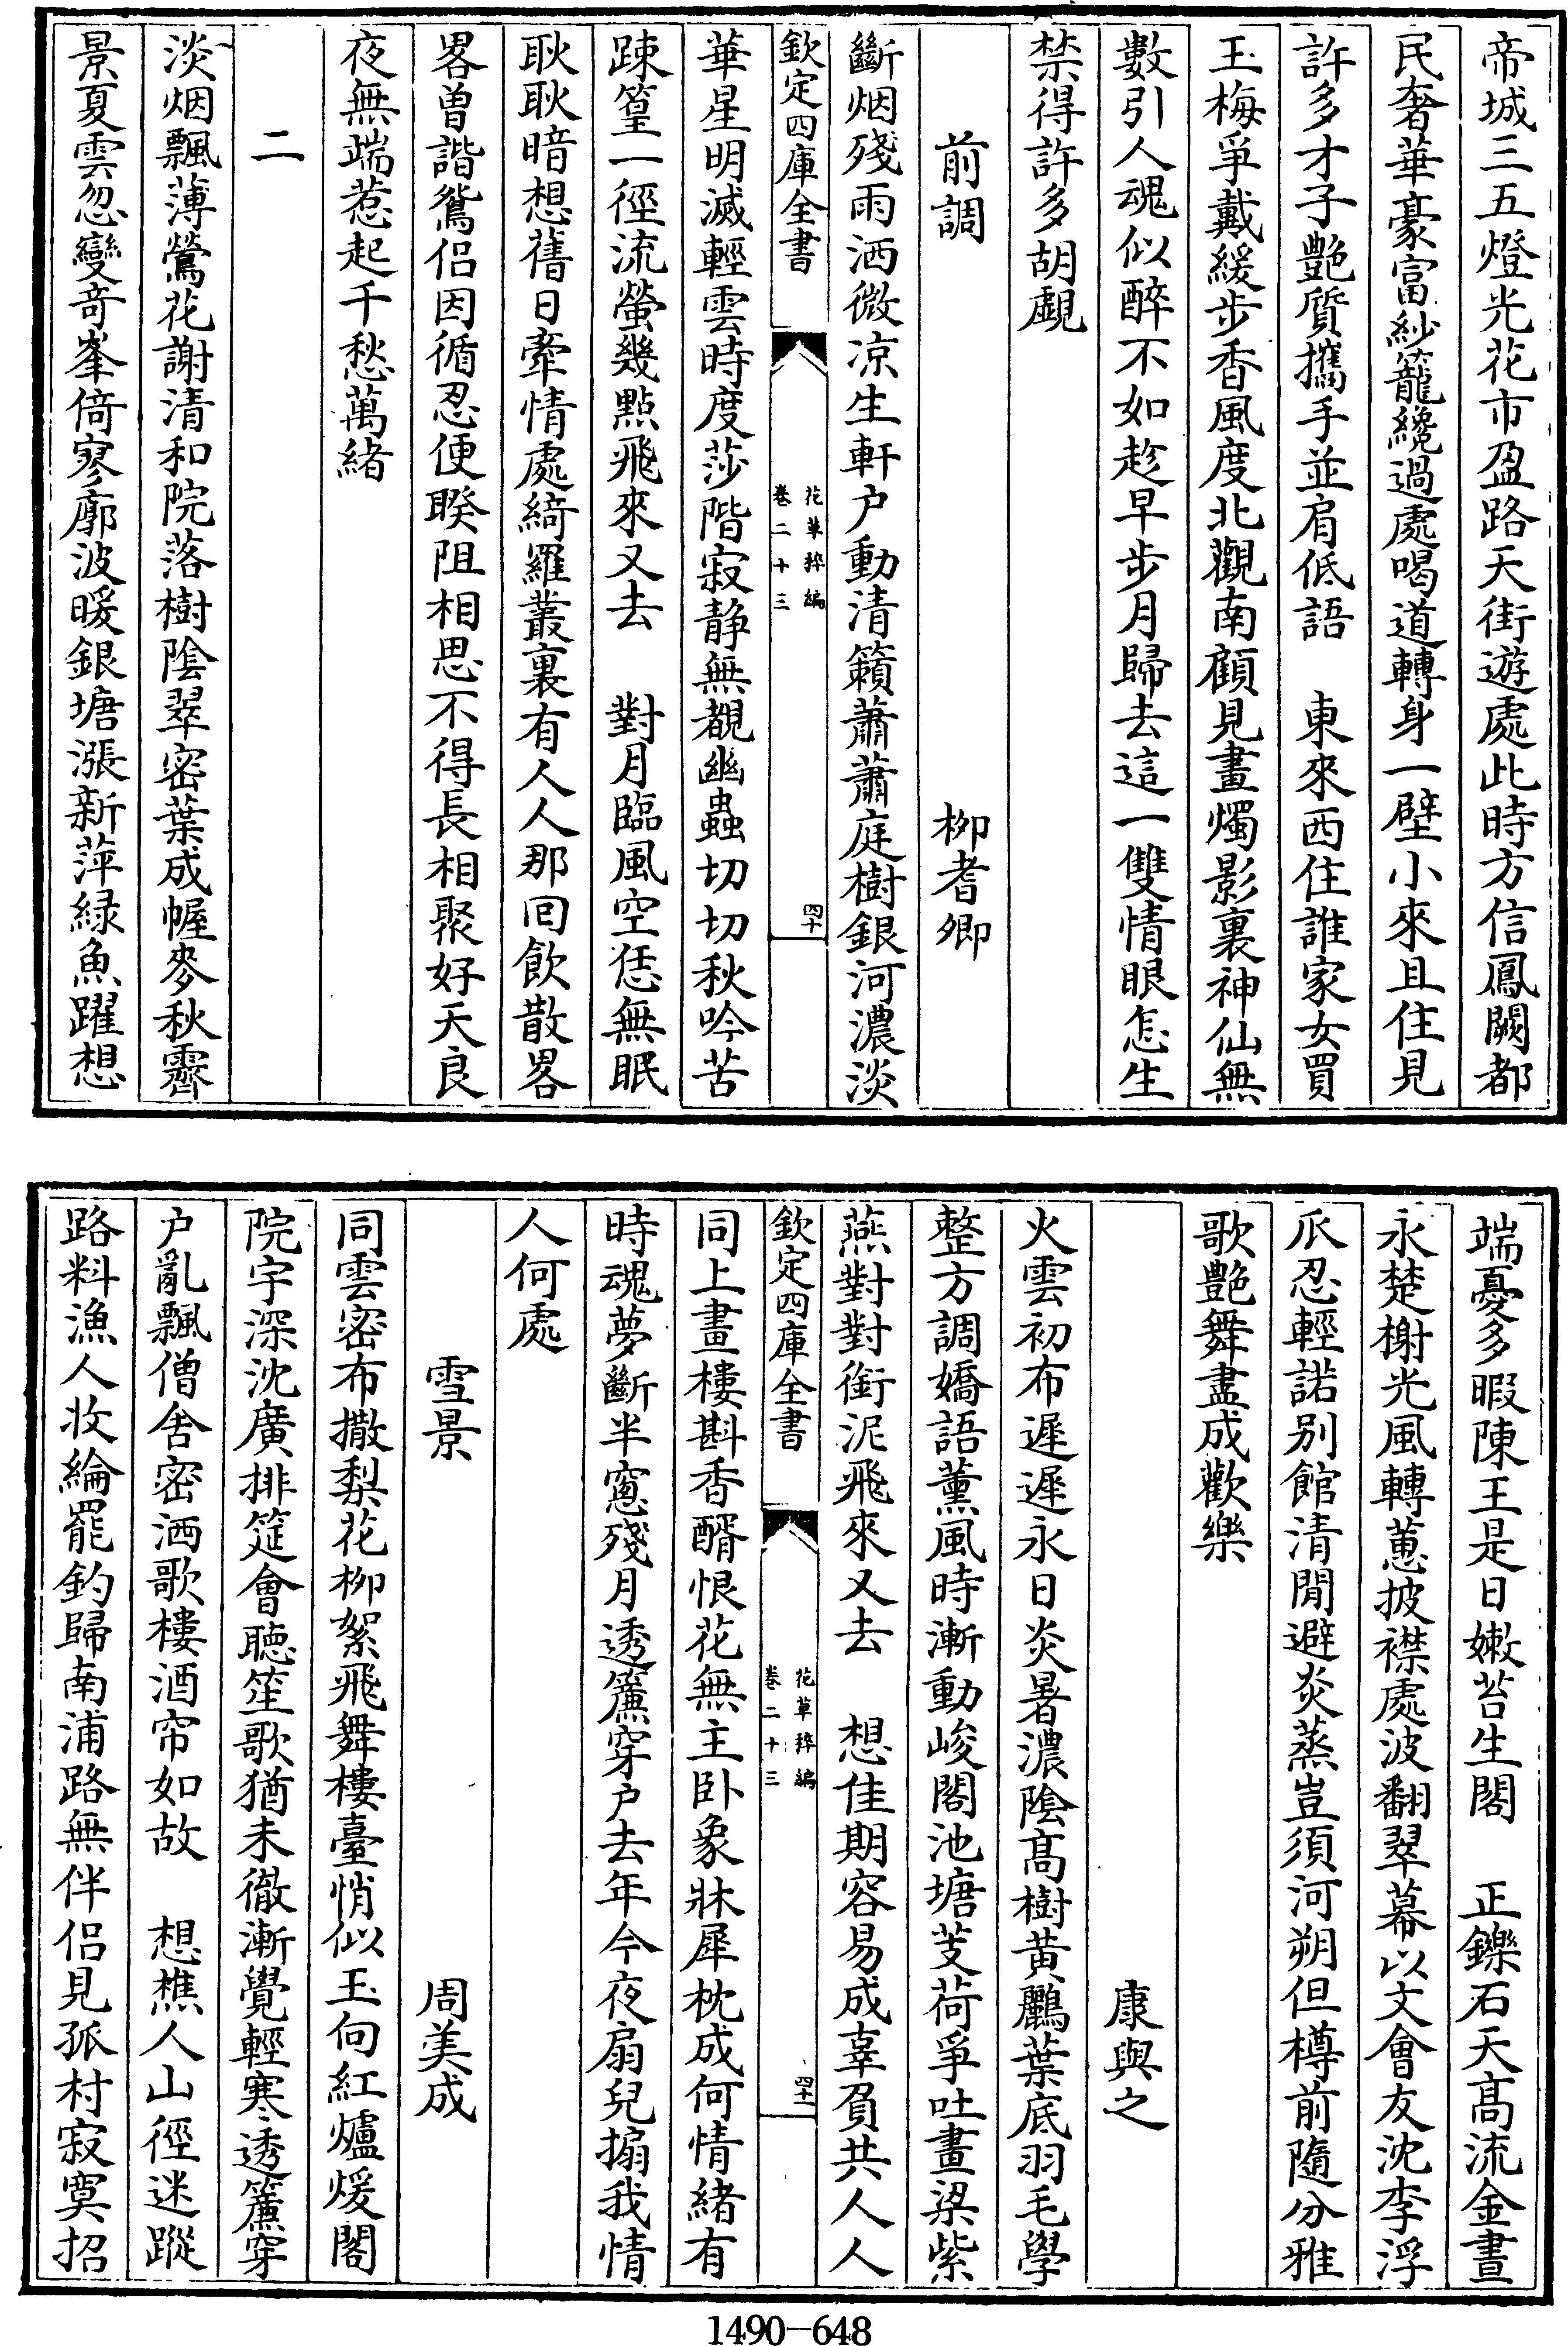 帝城三五燈光花市盈路天街遊處此時方信鳳闕都
民奢華豪富紗籠纔過處喝道轉身一壁小來且住見
許多才子艷質攜手並肩低語　東來西住誰家女買
玉梅爭戴緩步香風度北觀南顧見畫燭影裏神仙無
數引人魂似醉不如趁早步月歸去這一雙情眼怎生
禁得許多胡覰
前調　柳耆卿
斷烟殘雨洒微凉生軒户動清籟蕭蕭庭樹銀河濃淡
欽定四庫全書　花草稡編 卷二十三　四十
華星明滅輕雲時度莎階寂静無覩幽蟲切切秋吟苦
踈篁一徑流螢幾點飛來又去　對月臨風空恁無眠
耿耿暗想舊日牽情處綺羅叢裏有人人那回飲散畧
畧曽諧鴛侣因循忍便睽阻相思不得長相聚好天良
夜無端惹起千愁萬緒
二
淡烟飄薄鶯花謝清和院落樹隂翠密葉成幄麥秋霽
景夏雲忽變竒峯倚寥廓波暖銀塘漲新萍緑魚躍想
端憂多暇陳王是日嫩苔生閣　正鑠石天髙流金晝
永楚榭光風轉蕙披襟處波翻翠幕以文會友沈李浮
瓜忍輕諾别館清閒避炎蒸豈須河朔但樽前隨分雅
歌艷舞盡成歡樂
康與之
火雲初布遲遲永日炎暑濃隂髙樹黄鸝葉底羽毛學
整方調嬌語薰風時漸動峻閣池塘芰荷爭吐畫梁紫
燕對對銜泥飛來又去　想佳期容易成辜負共人人
欽定四庫全書　花草稡編 卷二十三　四十一
同上畫樓斟香醑恨花無主卧象牀犀枕成何情緒有
時魂夢斷半窻殘月透簾穿户去年今夜扇兒搧我情
人何處
雪景　周美成
同雲密布撒梨花柳絮飛舞樓臺悄似玉向紅爐煖閣
院宇深沈廣排筵會聽笙歌猶未徹漸覺輕寒透簾穿
户亂飄僧舍密洒歌樓酒帘如故　想樵人山徑迷蹤
路料漁人收綸罷釣歸南浦路無伴侣見孤村寂寞招
1490—648